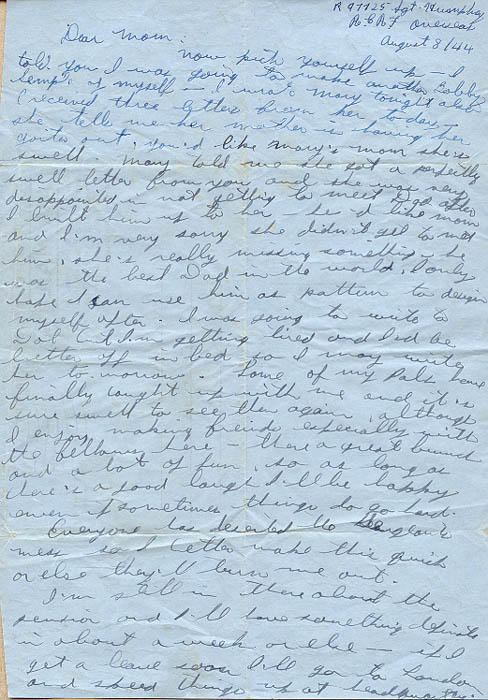 R 97725 Sgt. Humphrey
R.C.A.F. Overseas
August 8/44
Dear Mom:
Now pick yourself up - I
told you I was going to make another
temp't of myself - I wrote Mary tonight also
I received three letters from her to-day -
she tells me her mother is having her
out. You'd like Mary's mom she's
swell. Mary told me she got a perfectly
swell letter from you and she was very
disappointed in not getting to meet Dad after
I built him up to her - he'd like mom
and I'm very sorry she didn't get to meet
him, she's really missing something - he
was the best Dad in the world, I only
hope I can use him as pattern to design
myself after. I was going to write to
Dot but I'm getting tired and I'd be
better off in bed so I may write
her to-morrow. Some of my Pals have
finally caught up with me and it's
sure swell to see them again, although
I enjoy making friends especially with
the fellows here - there a great bunch
and a lot of fun, so as long as
there's a good laugh I'll be happy
even if sometimes things do go hard.
Everyone has deserted the Sergeant's
mess so I better make this quick
or else they'll turn me out.
I'm still in there about the
pension and I'll have something definite
in about a week or else - if I
get a leave soon I'll go to London
and speed things up at headquarters.